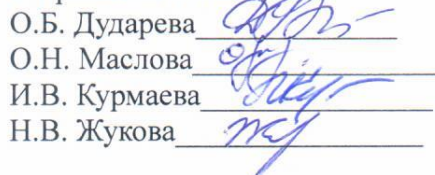 О.Б. Дударева
О.Н. Маслова
И.В. Курмаева
Н.В. Жукова